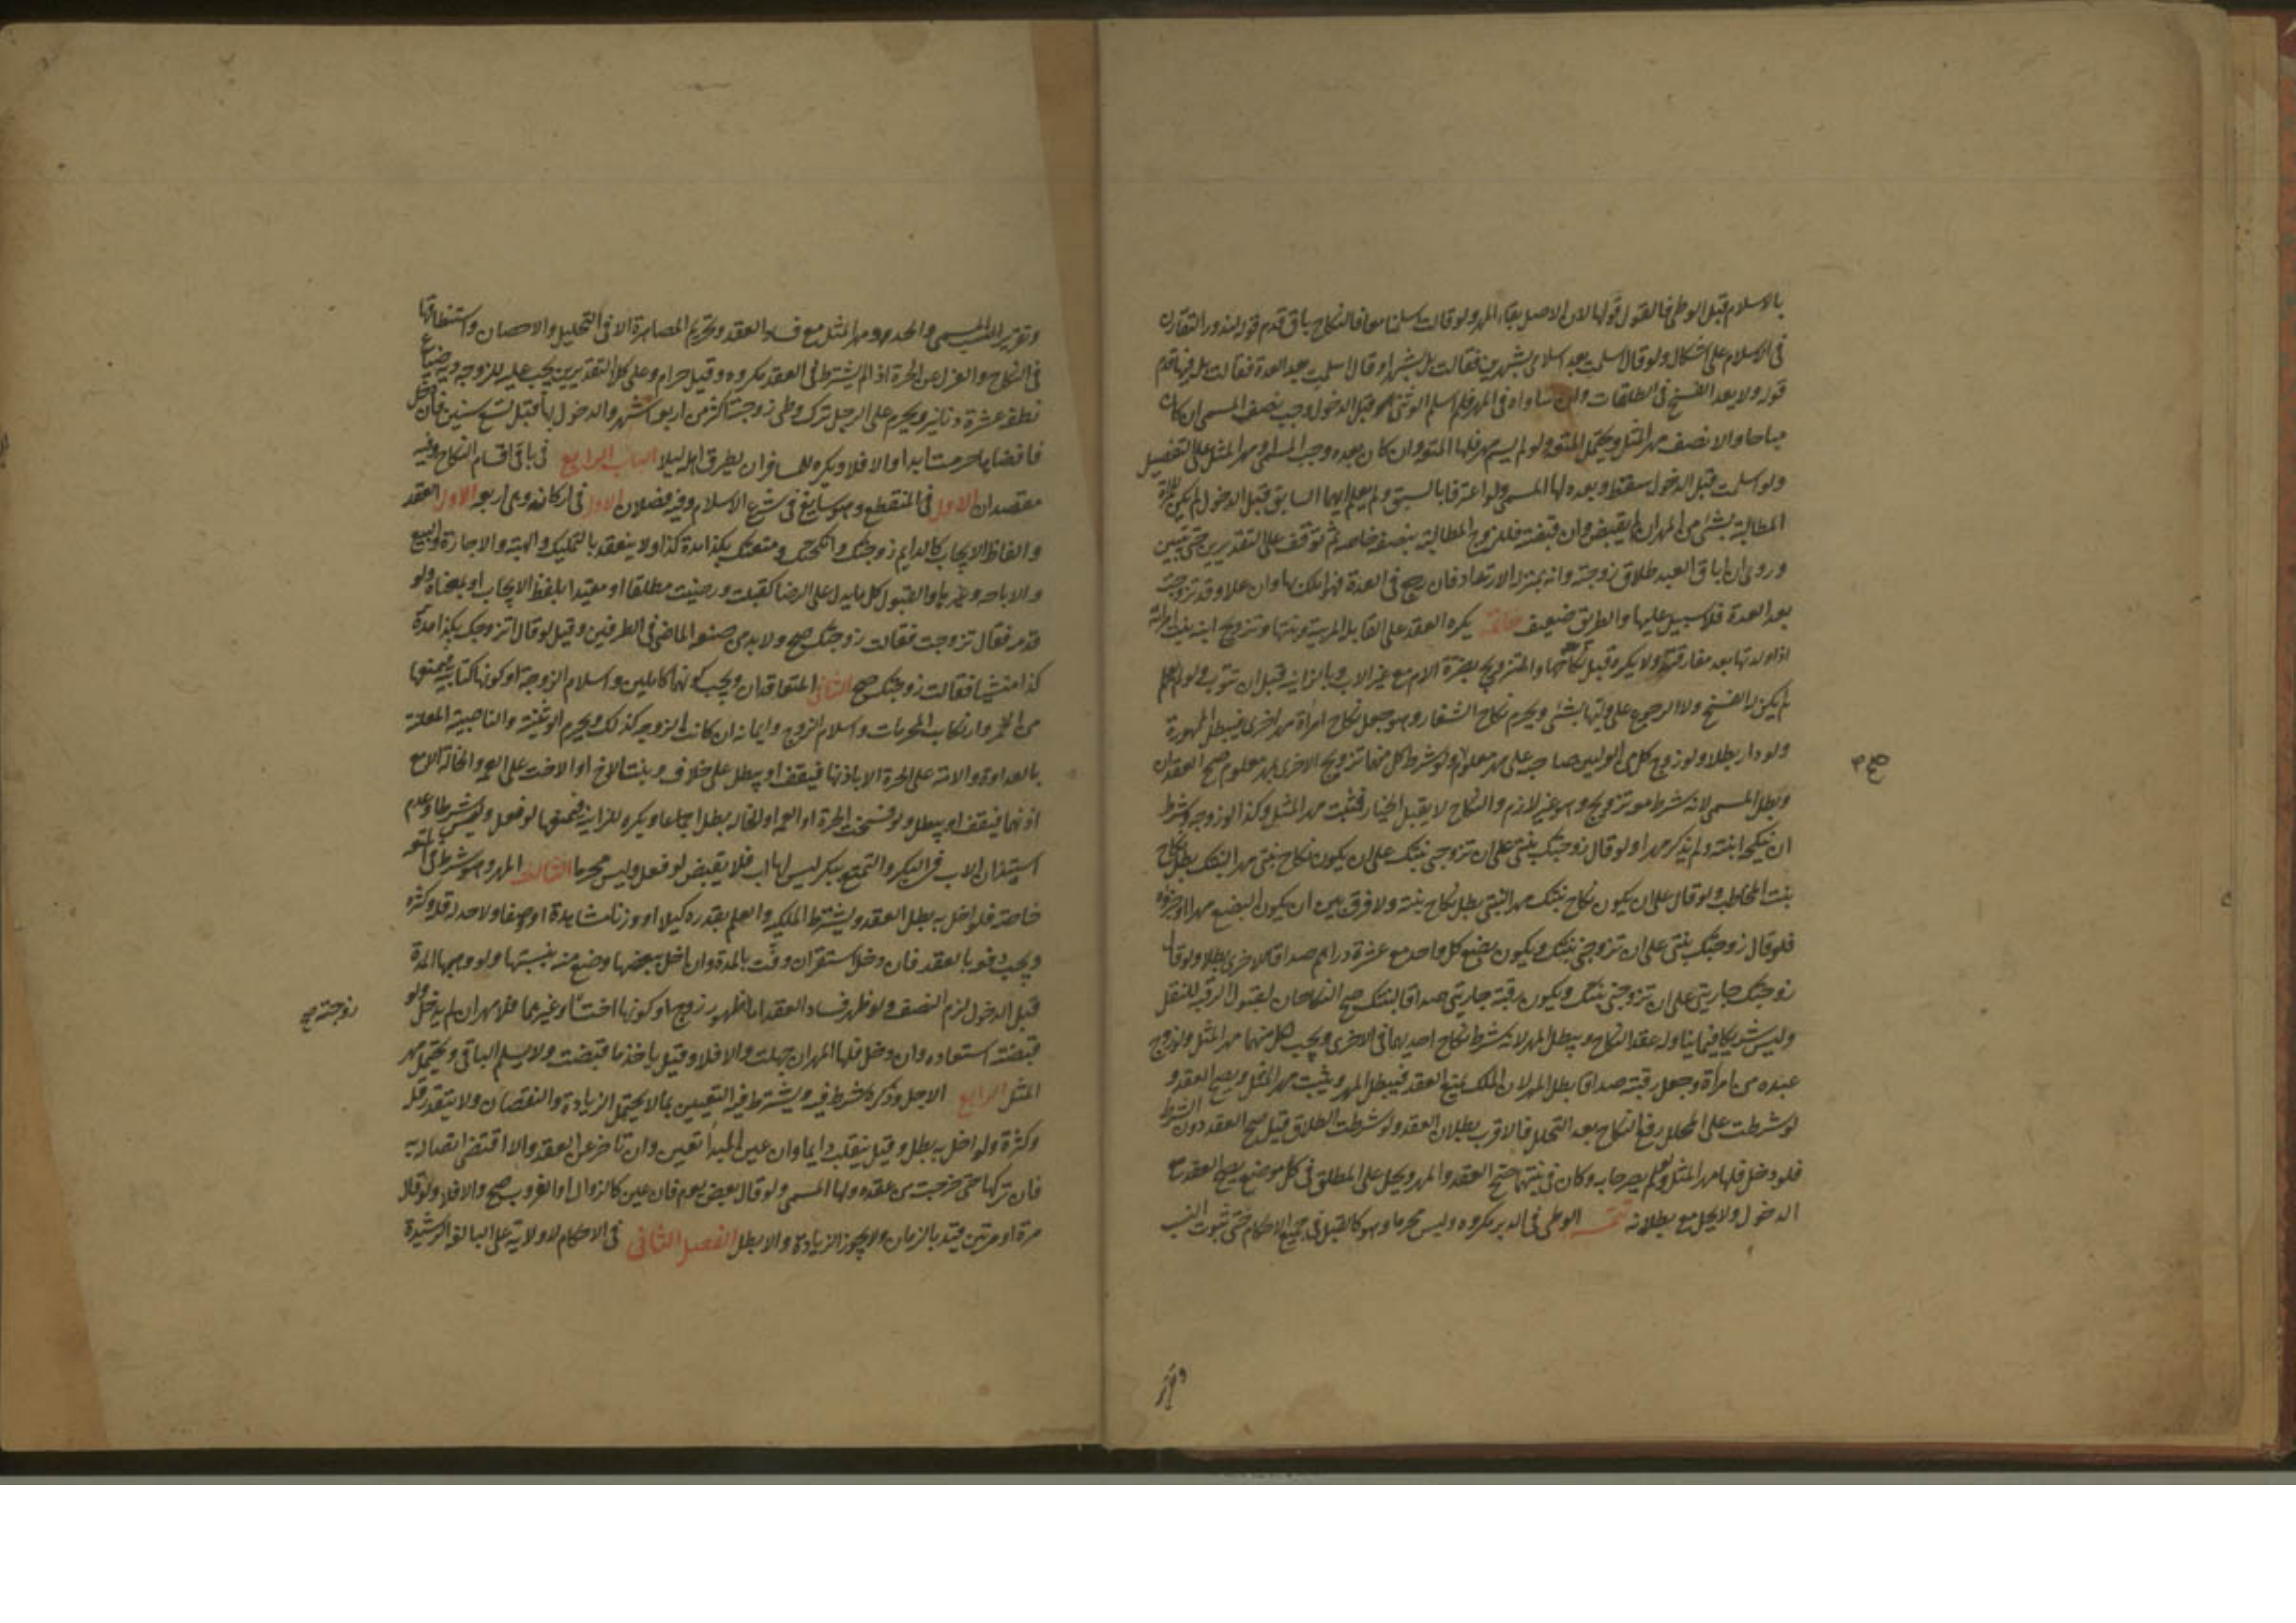 بالاسلام قبل الوطی فالقول قولها لان الاصل بقاء المهر ولو قالت اسلمنا معا فالنکاح باق قدم قوله لندور التقارن
فی الاسلام علی اشکال ولو قال اسلمت بعد اسلامی بشهرین فقالت بل بشهر او قال اسلمت بعد العدة فقالت بل فیها قدم
قوله ولا یعد الفسخ فی الطلقات وان ساواه فی المهر فلو اسلم الوثنی قبل الدخول وجب نصف المسمی ان کان
مباحا والا نصف مهر المثل ویحتمل المتعه ولو لم یسم مهر فلها المتعه وان کان بعده وجب المسمی او مهر المثل علی التفصیل
ولو اسلمت قبل الدخول سقط وبعده لها المسمی ولو اعترفا بالسبق ولم یعلم ایهما السابق قبل الدخول لم یکن للمراة
المطالبة بشئ من المهر ان لم تقبض وان قبضته فللزوج المطالبة بنصفه خاصه ثم توقف علی التقدیرین حتی یتبین
وروی ان اباق العبد طلاق زوجته وانه بمنزلة الارتداد فان رجع فی العدة فهو املک بها وان عاد وقد تزوجت
بعد العدة فلا سبیل علیها والطریق ضعیف خاتمة یکره العقد علی القابلة المربیة وبنتها وتزویج ابنه بنت امراته
اذا ولدتها بعد مفارقته ولا یکره قبل نکاحها والتزویج بضرة الام مع غیر الاب وبالزانیه قبل ان تتوب ولو لم یعلم
لم یکن له الفسخ ولا الرجوع علی ولیها بشئ ویحرم نکاح الشغار وهو جعل نکاح امراة مهر اخری فیبطل الممهورة
ولو دار بطلا ولو زوج کل من الولیین صاحبه علی مهر معلوم وشرط کل منهما تزویج الاخری بمهر معلوم صح العقدان
وبطل المسمی لانه شرط معه تزویج وهو غیر لازم والنکاح لا یقبل الخیار فیثبت مهر المثل وکذا لو زوجه وشرط
ان ینکحه ابنته ولم یذکر مهرا ولو قال زوجتک بنتی علی ان تزوجنی بنتک علی ان یکون نکاح بنتی مهرا لبنتک بطل نکاح
بنت المخاطب ولو قال علی ان یکون نکاح بنتک مهرا لبنتی بطل نکاح بنته ولا فرق بین ان یکون البضع مهرا او جزؤه
فلو قال زوجتک بنتی علی ان تزوجنی بنتک ویکون بضع کل واحد مع عشرة دراهم صداقا للاخری بطلا ولو قال
زوجتک جاریتی علی ان تزوجنی بنتک ویکون رقبة جاریتی صداقا لبنتک صح النکاحان لقبول الرقبه للنقل
ولیس تشریکا فیما یتناوله عقد النکاح ویبطل المهر لانه شرط نکاح احدیهما فی الاخری ویجب لکل منهما مهر المثل ولو زوج
عبده من امراة وجعل رقبته صداقا بطل المهر لان الملک یمنع العقد فیبطل المهر ویثبت مهر المثل ویصح العقد و
لو شرطت علی المحلل رفع النکاح بعد التحلیل فالاقرب بطلان العقد ولو شرطت الطلاق قیل صح العقد دون الشرط
فلو دخل فلها مهر المثل ولو لم یصرحا به وکان فی نیتهما صح العقد والمهر ویحل علی المطلق فی کل موضع یصح العقد مع
الدخول ولا یحل مع بطلانه تتمه الوطی فی الدبر مکروه ولیس محرما وهو کالقبل فی جمیع الاحکام حتی ثبوت النسب
وتقریر المسمی والحد ومهر المثل مع فساد العقد وتحریم المصاهرة الا فی التحلیل والاحصان واستنطاقها
فی النکاح والعزل عن الحرة اذا لم یشترط فی العقد مکروه وقیل حرام وعلی کلا التقدیرین یجب علیه للزوجه دیة ضیاع
نطفه عشرة دنانیر ویحرم علی الرجل ترک وطی زوجته اکثر من اربعة اشهر والدخول بها قبل تسع سنین فان دخل
فافضاها حرمت ابدا والا فلا ویکره للمسافر ان یطرق اهله لیلا الباب الرابع فی باقی اقسام النکاح وفیه
مقصدان الاول فی المنقطع وهو سایغ فی شرع الاسلام وفیه فصلان الاول فی ارکانه وهی اربعه الاول العقد
والفاظ الایجاب کالدایم زوجتک وانکحتک ومتعتک بکذا مدة کذا ولا ینعقد بالتملیک والهبة والاجارة والبیع
والاباحه وغیرها والقبول کل ما یدل علی الرضا کقبلت ورضیت مطلقا او مقیدا بلفظ الایجاب او بمعناه ولو
قدم فقال تزوجت فقالت زوجتک صح ولا بد من صیغه الماضی فی الطرفین وقیل لو قال اتزوجک بکذا مدة
کذا منشیا فقالت زوجتک صح الثانی المتعاقدان ویجب کونهما کاملین واسلام الزوجة او کونها کتابیه فیمنعها
من الخمر وارتکاب المحرمات واسلام الزوج وایمانه ان کانت الزوجه کذلک ویحرم الوثنیة والناصبیة المعلنة
بالعداوة والامة علی الحرة الا باذنها فیقف او یبطل علی خلاف وبنت الاخ او الاخت علی العمه والخالة الا مع
اذنهما فیقف او یبطل ولو فسخت الحرة او العمه او الخاله بطل اجماعا ویکره للزانیة فیمنعها لو فعل ولیس شرطا وعدم
استیذان الاب فی البکر والتمتع ببکر لیس لها اب فلا یفتض لو فعل ولیس محرما الثالث المهر وهو شرط فی المتعه
خاصة فلو اخل به بطل العقد ویشترط الملکیه والعلم بقدره کیلا او وزنا او مشاهدة او وصفا ولا حد له قلة وکثرة
ویجب دفعه بالعقد فان دخل استقر ان وفت بالمدة وان اخل ببعضها وضع منه بنسبتها ولو وهبها المدة
قبل الدخول لزم النصف ولو ظهر فساد العقد اما بظهور زوج او کونها اختا او غیرهما فلا مهر ان لم یدخل ولو
قبضته استعاده وان دخل فلها المهر ان جهلت والا فلا وقیل یاخذ ما قبضت ولا یسلم الباقی ویحتمل مهر
المثل الرابع الاجل وذکره شرط فیه ویشترط فیه التعیین بما لا یحتمل الزیادة والنقصان ولا یتقدر قلة
وکثرة ولو اخل به بطل وقیل ینقلب دایما وان عین المبدأ تعین وان تاخر عن العقد والا اقتضی اتصاله به
فان ترکها حتی خرجت من عقده ولها المسمی ولو قال بعض یوم فان عین کالزوال او الغروب صح والا فلا ولو قال
مرة او مرتین قید بالزمان ولا یجوز الزیادة والا بطل الفصل الثانی فی الاحکام لا ولایة علی البالغة الرشیدة
زوجته